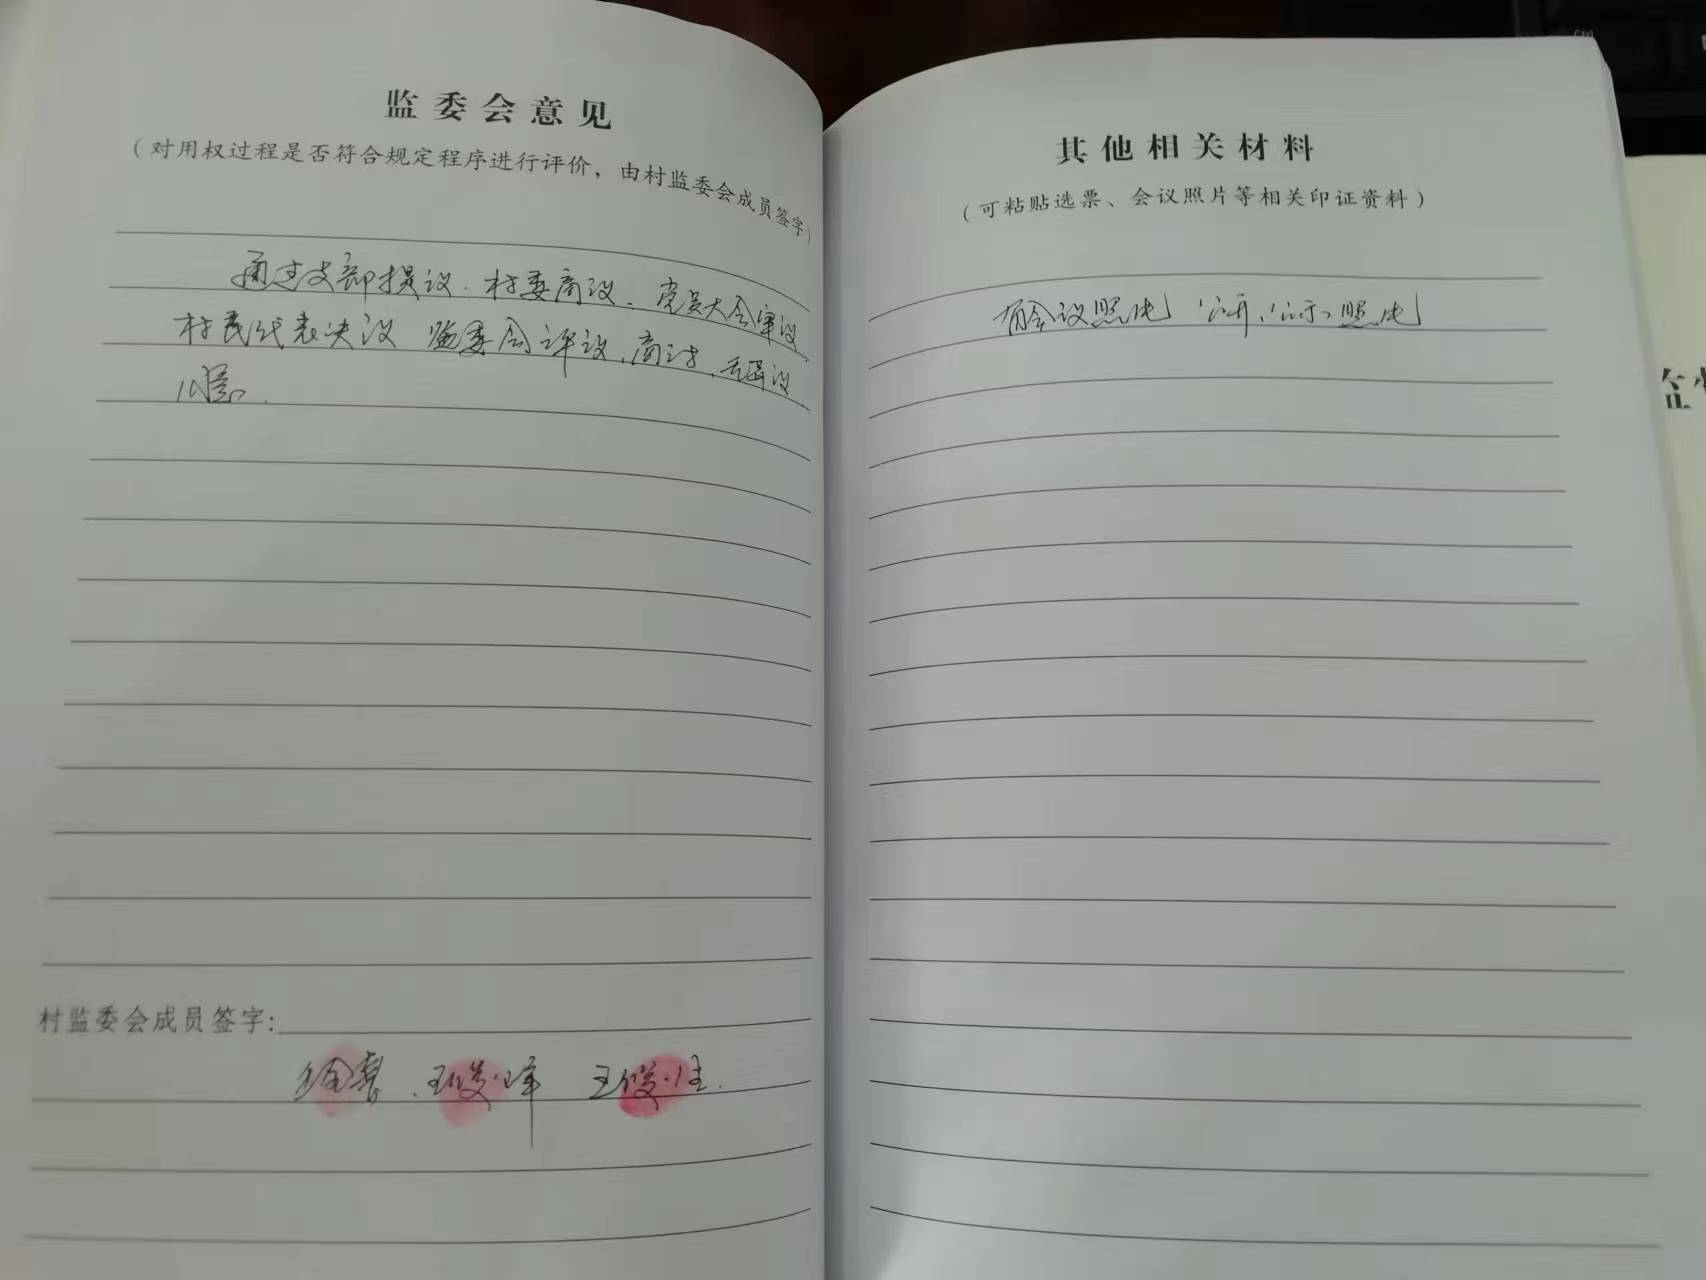 监委会意见
（对用权过程是否符合规定程序进行评价，由村监委会成员签字）
通过支部提议.村委商议、党员大会审议
村民代表决议 监委会评议、商讨，无异议
同意.
村监委会成员签字:
王俊峰 王俊
其他相关材料
（可粘贴选票、会议照片等相关印证资料）
有会议照片 公开、公示照片
监